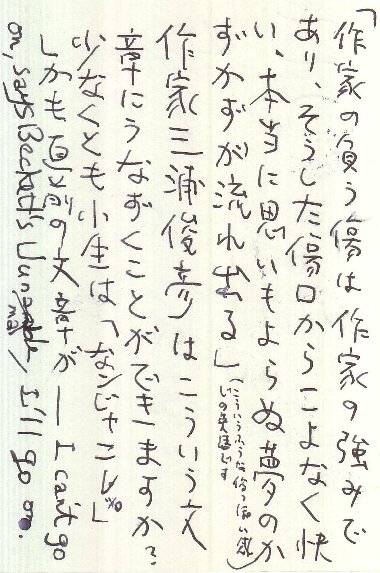 「作家の負う傷は作家の強みで
あり、そうした傷口からこよなく快
い、本当に思いもよらぬ夢のか
ずかずが流れ出る」(こういうふうな俗っぽい感じの英語です)
作家三浦俊彦はこういう文
章にうなずくことができますか?
少なくとも小生は「なンじゃコレ%」
しかも直前の文章が — I can't go
on, says Beckett's Unnamable, I'll go on.